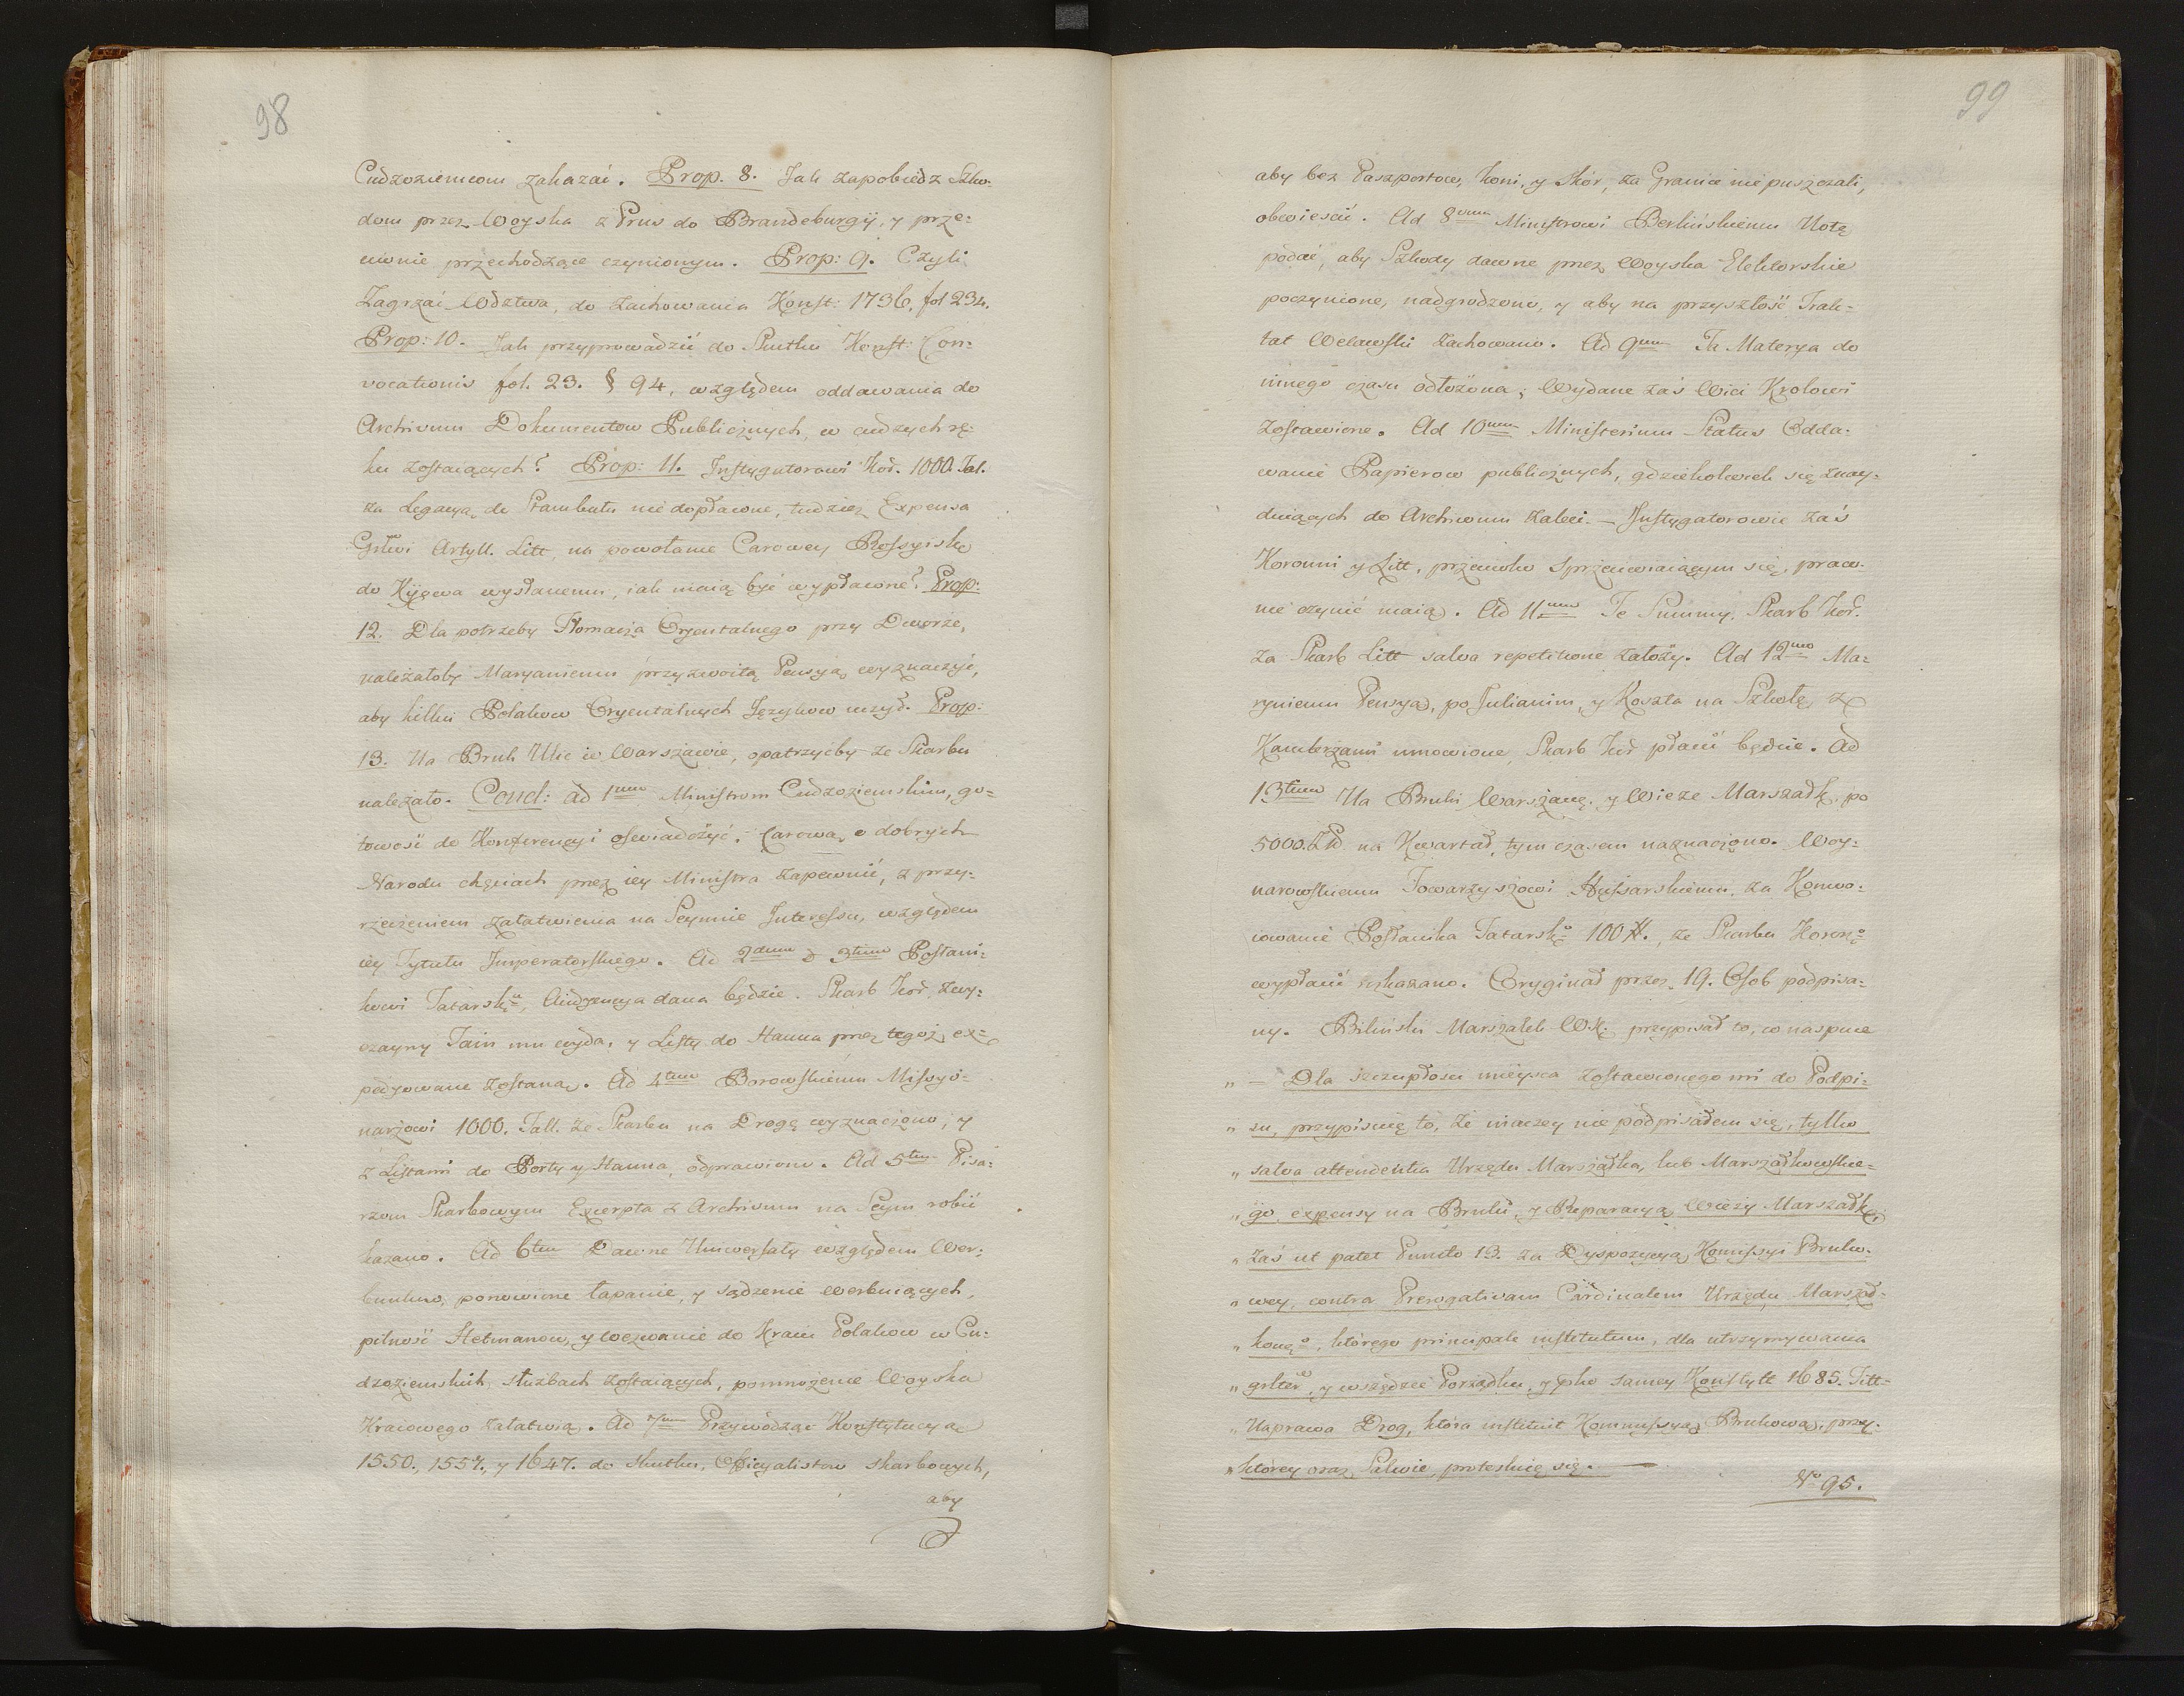 98
Cudzoziemcom zakazać. Prop. 8. Jak zapobiedz Szko-
dom przez Woyska z Prus do Brandeburgij, y prze-
ciwnie przechodzące czynionym. Prop: 9. Czyli
Zagrzać Wodztwa, do zachowania Konst: 1736, fol 234.
Prop: 10. Jak przyprowadzić do Skutku Konst: Con-
vocationis fol. 23. § 94, względem oddawania do
Archivum Dokumentow Publicznych, w cudzych rę-
ku zostaiących? Prop: 11. Instygatorowi Kor. 1000. Tal.
za Legacyą do Stambułu niedopłacone, tudziez Expensa
Grłwi Artyll. Litt, na powołanie Carowey Rossyiskę
do Kyiowa wysłanemu, iak maią być wypłacone? Prop:
12. Dla potrzeby Tłomacza Oryentalnego przy Dworze,
należałoby Maryaniemu przyzwoitą Pensyą wyznaczyć,
aby kilku Polakow Oryentalnych Językow uczył. Prop:
13. Na Bruk Ulic w Warszawie, opatrzyćby ze Skarbu
należało. Concl: ad 1mum Ministrom Cudzoziemskim, go-
towość do Konferencyi oświadczyć; Carową o dobrych
Narodu chęciach przez iey Ministra zapewnić, z przy-
rzeczeniem załatwienia na Seymie Interessu, względem
iey Tytułu Imperatorskiego. Ad 2dum & 3tium Posłani-
kowi Tatarsko, Audyencya dana będzie. Skarb Kor, zwy-
czayny Tain mu wyda, y Listy do Hanna przez tegoż ex-
pedyowane zostaną. Ad 4tum Borowskiemu Missyo-
narzowi 1000. Tall. ze Skarbu na Drogę wyznaczono, y
z Listami do Porty y Hanna, odprawiono. Ad 5tum Pisa-
rzom Skarbowym Excerpta z Archivum na Seym robić
kazano. Ad 6tum Dawne Uniwersały względem Wer-
bunkow, ponowione łapanie, y sądzenie werbuiących,
pilność Hetmanow, y wezwanie do Kraiu Polakow w Cu-
dzoziemskich służbach zostaiących, pomnożenie Woyska
Kraiowego załatwią. Ad 7mum Przywodząc Konstytucyą
1550., 1557., y 1647. do skutku, Officyalistow skarbowych,
aby
99
aby bez Paszportow, koni, y skór, za Granicę nie puszczali,
obwieścić. Ad 8vum Ministrowi Berlińskiemu Notę
podać, aby Szkody dawne przez Woyska Elektorskie
poczynione, nadgrodzono, y aby na przyszłość Trak-
tat Welawski zachowano. Ad 9num Ta Materya do
innego czasu odłożona; Wydane zaś Wici Krolowi
zostawione. Ad 10mum Ministerium Status Odda-
wanie Papierow publicznych, gdziekolwiek się znay-
duiących do Archivum zaleci. — Instygatorowie zaś
Koronni y Litt, przeciwko sprzeciwiaiącym się, praw-
nie czynić maią. Ad 11mum Te Summy, Skarb Kor.
za Skarb Litt salva repetitione założy. Ad 12mo Ma-
ryniemu Pensyą, po Julianim, y Koszta na Szkołę z
Kamberzami umowione, Skarb Kor płacić będzie. Ad
13tium Na Bruki Warszawę. y Wieże Marszałk. po
5000. Zł na Kwartał, tym czasem naznaczono. Woy-
narowskiemu Towarzyszowi Hussarskiemu, za Konwo-
iowanie Posłanika Tatarsko 100 #., ze Skarbu Korono
wypłacić wskazano. Oryginał przez 19. Osob podpisa-
ny. Biliński Marszałek WK. przypisał to, co naspuie
„ — Dla szczupłości mieysca zostawionego mi do Podpi-
„ su, przypisuię to, że inaczey nie podpisałem się, tylko
„ salva attendentia Urzędu Marszałka, lub Marszałkowskie-
„ go expensy na Bruki, y Reparacyą Wieży Marszałk:
„ Zaś ut patet Puncto 13. za Dyspozycyą Komissyi Bruko-
„ wey, contra Prerogativam Cardinalem Urzędu Marszał-
„ kowgo, którego principale institutum, dla utrzymywania
„ y wszędzie Porządku, y samey Konstytt 1685. Titt-
„ Naprawa Drog, która instituit Kommissyą Brukową, przy-
„ którey oraz Salvie protestuię się. —
No 95.